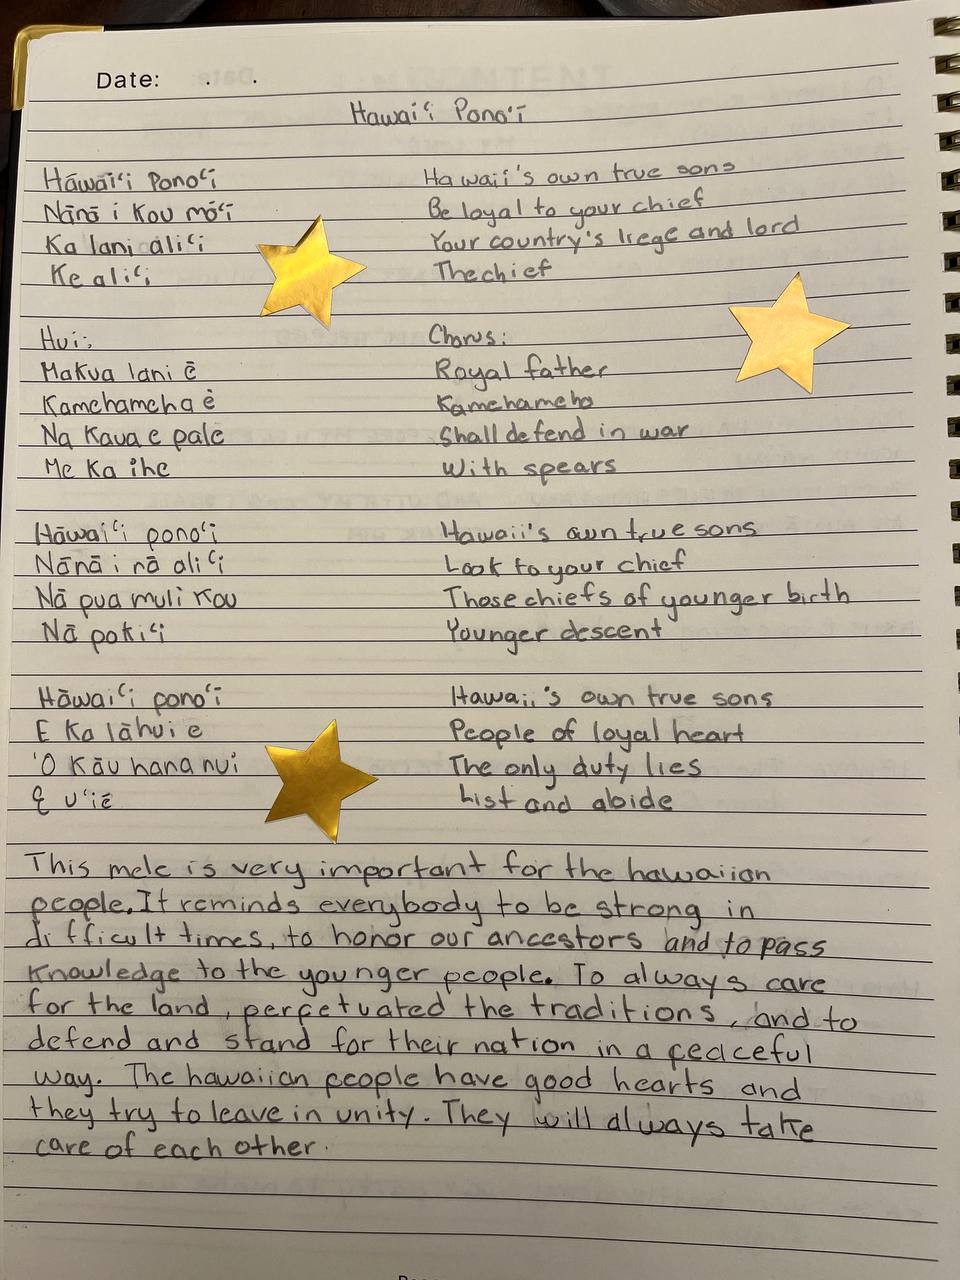 Date: . .
Hawaiʻi Ponoʻī
Hāwāiʻi Ponoʻī Hawaii's own true sons
Nānā i Kou mōʻī Be loyal to your chief
Ka lani aliʻi Your country's liege and lord
Ke aliʻi The chief
Hui: Chorus:
Makua lani ē Royal father
Kamehameha ē Kamehameha
Na Kaua e pale Shall defend in war
Me Ka ihe With spears
Hāwaiʻi ponoʻī Hawaii's own true sons
Nānā i nā aliʻi Look to your chief
Nā pua muli Kou Those chiefs of younger birth
Nā pokiʻi Younger descent
Hāwaiʻi ponoʻī Hawaii's own true sons
E Ka lāhui e People of loyal heart
ʻO Kāu hana nui The only duty lies
E uʻiē List and abide
This mele is very important for the hawaiian
people. It reminds everybody to be strong in
difficult times, to honor our ancestors and to pass
Knowledge to the younger people. To always care
for the land, perpetuated the traditions, and to
defend and stand for their nation in a peaceful
way. The hawaiian people have good hearts and
they try to leave in unity. They will always take
care of each other.